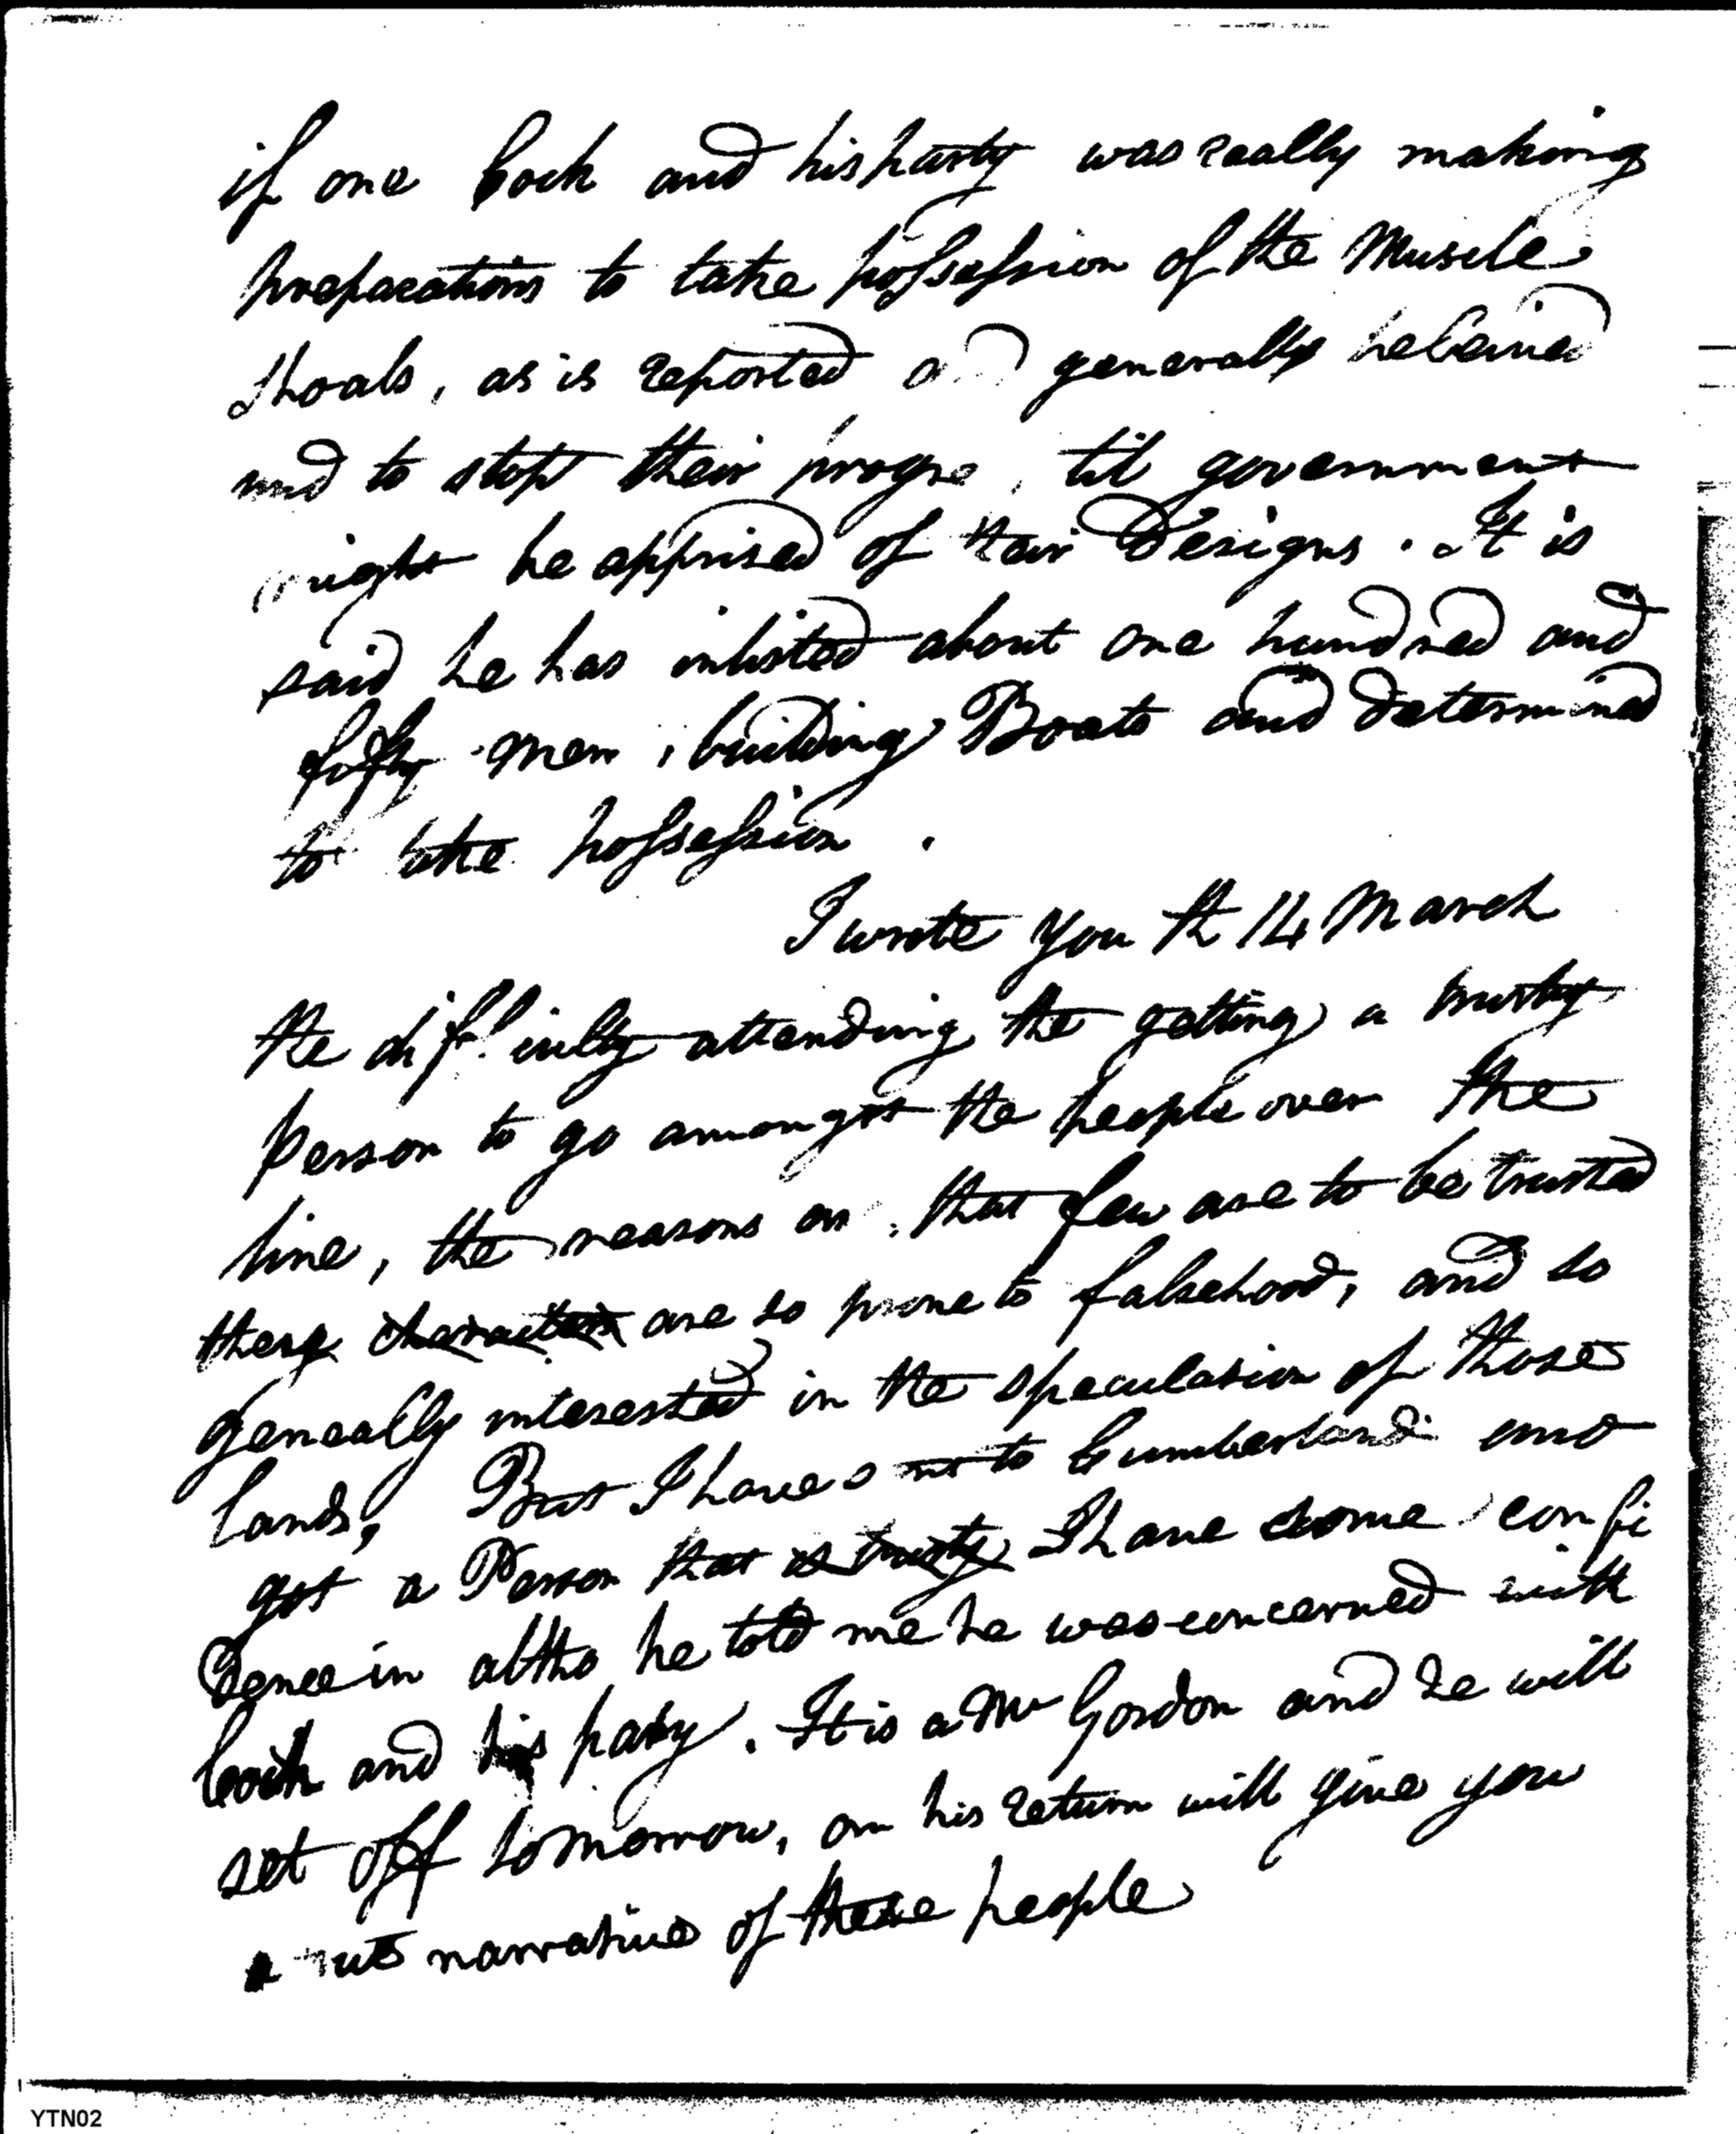 if one Cock and his party was really making
preparations to take possession of the Muscle
Shoals, as is reported and generally believed
and to stop their progre til government
might be apprised of their Designs. It is
said he has inlisted about one hundred and
fifty men, building Boats and determined
to take possession.
I wrote you th 14 March
the difficulty attending the getting a trusty
person to go amongst the people over the
line, the reasons are, that few are to be trusted
these characters are so prone to falsehood, and so
geneally interested in the speculation of those
lands, But I have sent to Cumberland and
got a Person that is trusty I have some confi
Dence in altho he told me he was concerned with
Cock and his paty. It is a Mr Gordon and he will
set off tomorrow, on his return will give you
a narrative of these people
YTN02